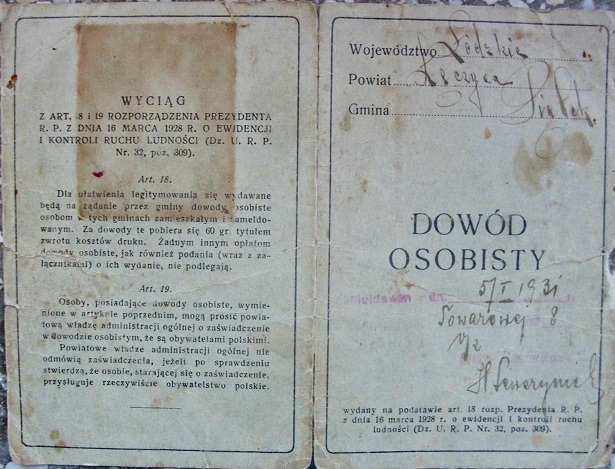 WYCIĄG
Z ART. 18 i 19 ROZPORZĄDZENIA PREZYDENTA
R. P. Z DNIA 16 MARCA 1928 R. O EWIDENCJI
I KONTROLI RUCHU LUDNOŚCI (Dz. U. R. P.
Nr. 32, poz. 309).
Art. 18.
Dla ułatwienia legitymowania się wydawane
będą na żądanie przez gminy dowody osobiste
osobom w tych gminach zamieszkałym i zameldo-
wanym. Za dowody te pobiera się 60 gr. tytułem
zwrotu kosztów druku. Żadnym innym opłatom
dowody osobiste, jak również podania (wraz z za-
łącznikami) o ich wydanie, nie podlegają.
Art. 19.
Osoby, posiadające dowody osobiste, wymie-
nione w artykule poprzednim, mogą prosić powia-
tową władzę administracji ogólnej o zaświadczenie
w dowodzie osobistym, że są obywatelami polskimi.
Powiatowe władze administracji ogólnej nie
odmówią zaświadczenia, jeżeli po sprawdzeniu
stwierdzą, że osobie, starającej się o zaświadczenie,
przysługuje rzeczywiście obywatelstwo polskie.
Województwo Łódzkie
Powiat Łęczyca
Gmina
DOWÓD
OSOBISTY
5/I 1931
Towarowej 8
wydany na podstawie art. 18 rozp. Prezydenta R. P.
z dnia 16 marca 1928 r. o ewidencji i kontroli ruchu
ludności (Dz. U. R. P. Nr. 32, poz. 309).